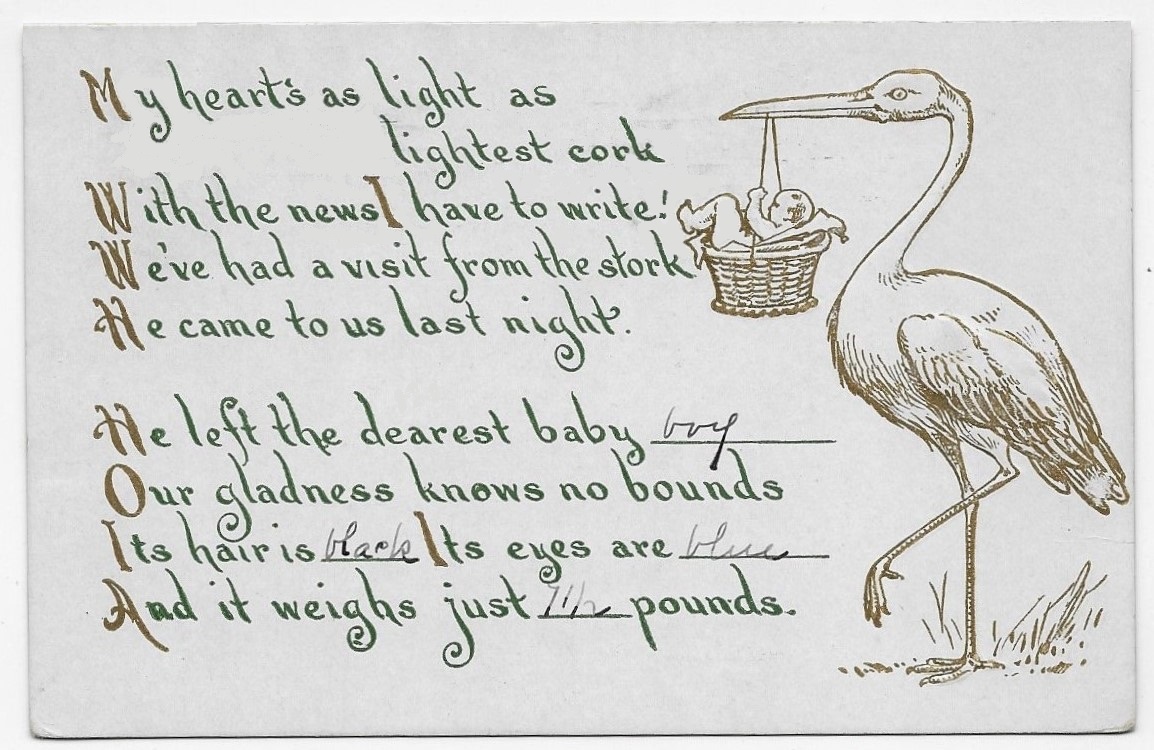 My heart's as light as
lightest cork
With the news I have to write!
We've had a visit from the stork
He came to us last night.
He left the dearest baby boy
Our gladness knows no bounds
Its hair is black Its eyes are blue
And it weighs just 7 1/2 pounds.